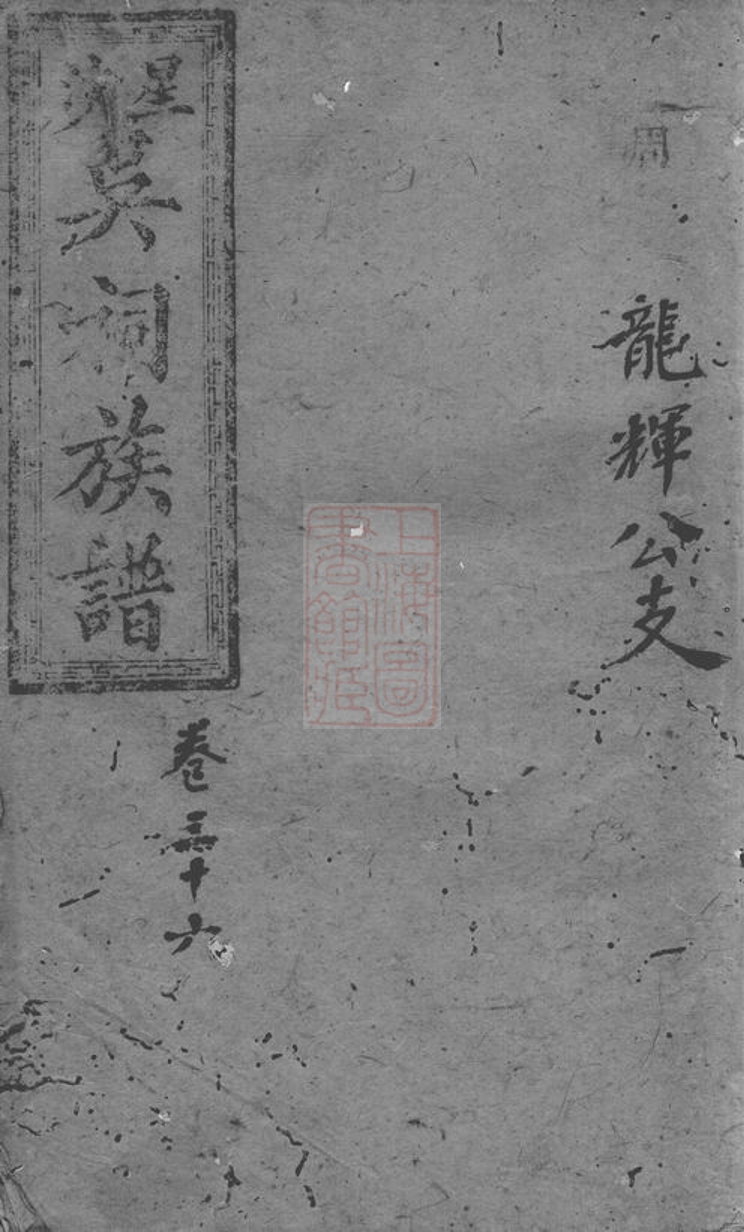 龍輝公支
星沙吳祠族譜
卷三十六
上海圖
書館藏